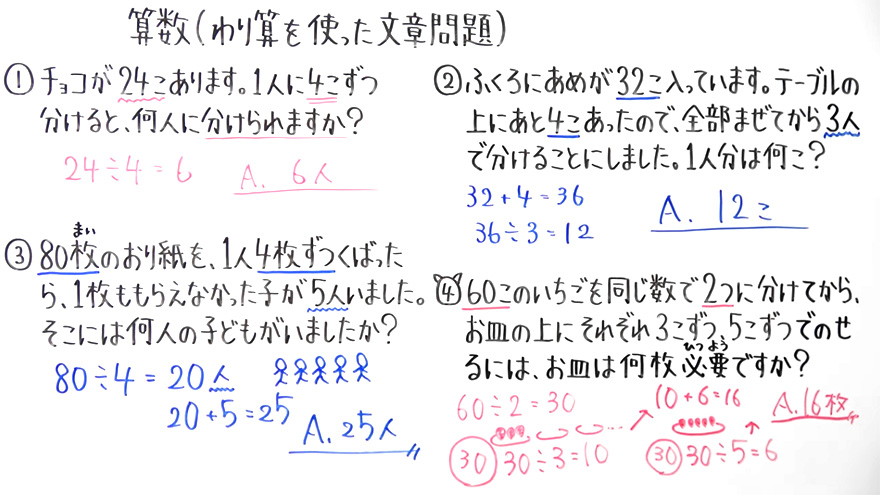 算数(わり算を使った文章問題)
① チョコが24こあります。1人に4こずつ
分けると、何人に分けられますか?
24÷4=6
A. 6人
② ふくろにあめが32こ入っています。テーブルの
上にあと4こあったので、全部まぜてから3人
で分けることにしました。1人分は何こ?
32+4=36
36÷3=12
A. 12こ
まい
③ 80枚のおり紙を、1人4枚ずつくばった
ら、1枚ももらえなかった子が5人いました。
そこには何人の子どもがいましたか?
80÷4=20人
20+5=25
A. 25人
④ 60このいちごを同じ数で2つに分けてから、
お皿の上にそれぞれ3こずつ、5こずつでのせ
ひつよう
るには、お皿は何枚必要ですか?
60÷2=30
10+6=16
A. 16枚
30 30÷3=10
30 30÷5=6